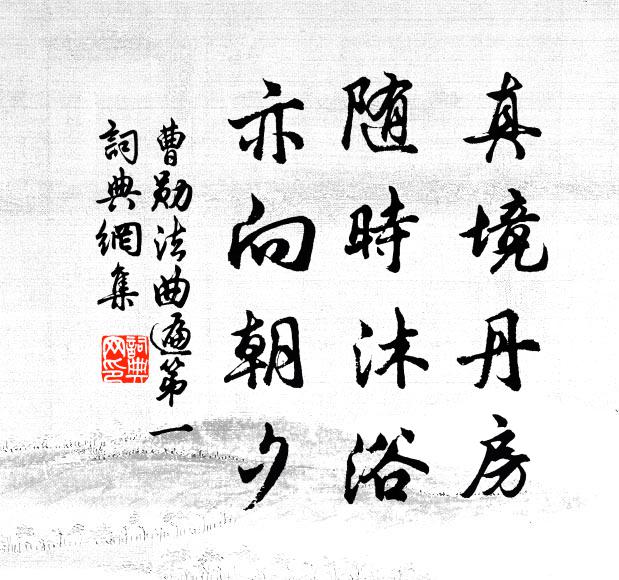 真境丹房
随時沐浴
亦向朝夕
曹勛法曲遍第一
詞典網集
詞典
网印